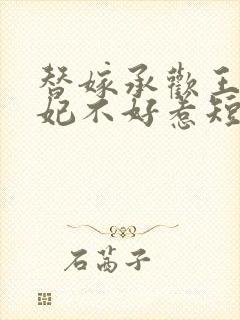 替嫁承歡王
妃不好惹短
石茜子